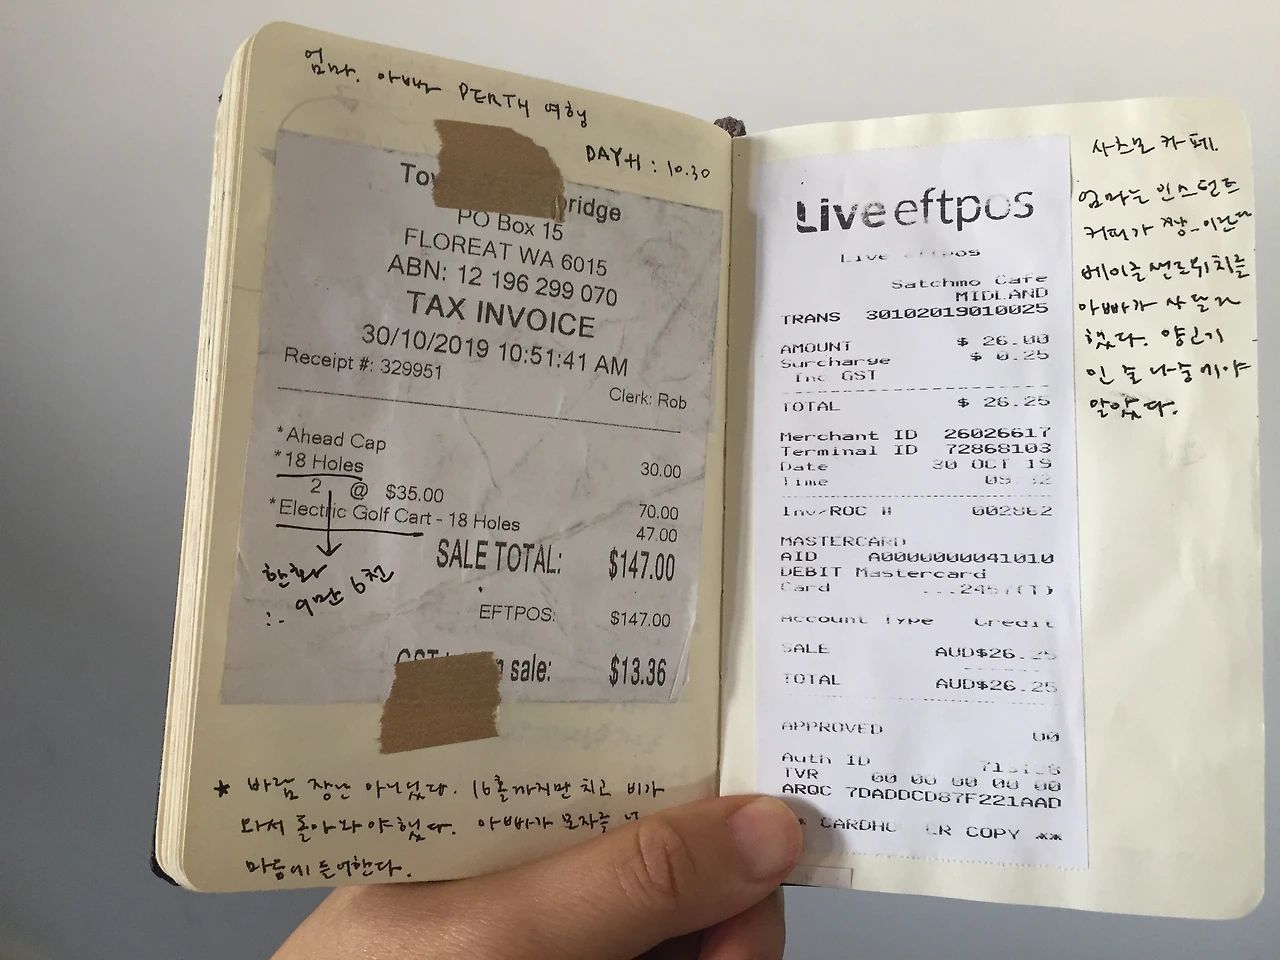 엄마. 아빠 PERTH 여행
DAY4 : 10.30
To bridge
PO Box 15
FLOREAT WA 6015
ABN: 12 196 299 070
TAX INVOICE
30/10/2019 10:51:41 AM
Receipt #: 329951
Clerk: Rob
*Ahead Cap 30.00
*18 Holes
2 @ $35.00 70.00
*Electric Golf Cart - 18 Holes 47.00
SALE TOTAL: $147.00
EFTPOS: $147.00
GST sale: $13.36
한화
:. 9만 6천
*바람 장난 아니었다. 16홀까지만 치고 비가
와서 돌아와야했다. 아빠가 모자를
마음에 들어한다.
Live eftpos
Live eftpos
Satchmo Cafe
MIDLAND
TRANS 30102019010025
AMOUNT $ 26.00
Surcharge $ 0.25
Inc GST
TOTAL $ 26.25
Merchant ID 26026617
Terminal ID 72868103
Date 30 OCT 19
Time
Inv/ROC # 002862
MASTERCARD
AID A0000000041010
DEBIT Mastercard
Card
Account Type Credit
SALE AUD$26.25
TOTAL AUD$26.25
APPROVED 00
Auth ID
TVR 00 00 00 00 00
ARQC 7DADDCD87F221AAD
COPY **
사츠모 카페.
엄마는 인스턴트
커피가 짱_이란다
베이글 샌드위치를
아빠가 사달라
했다. 양고기
인 줄 나중에야
알았다.